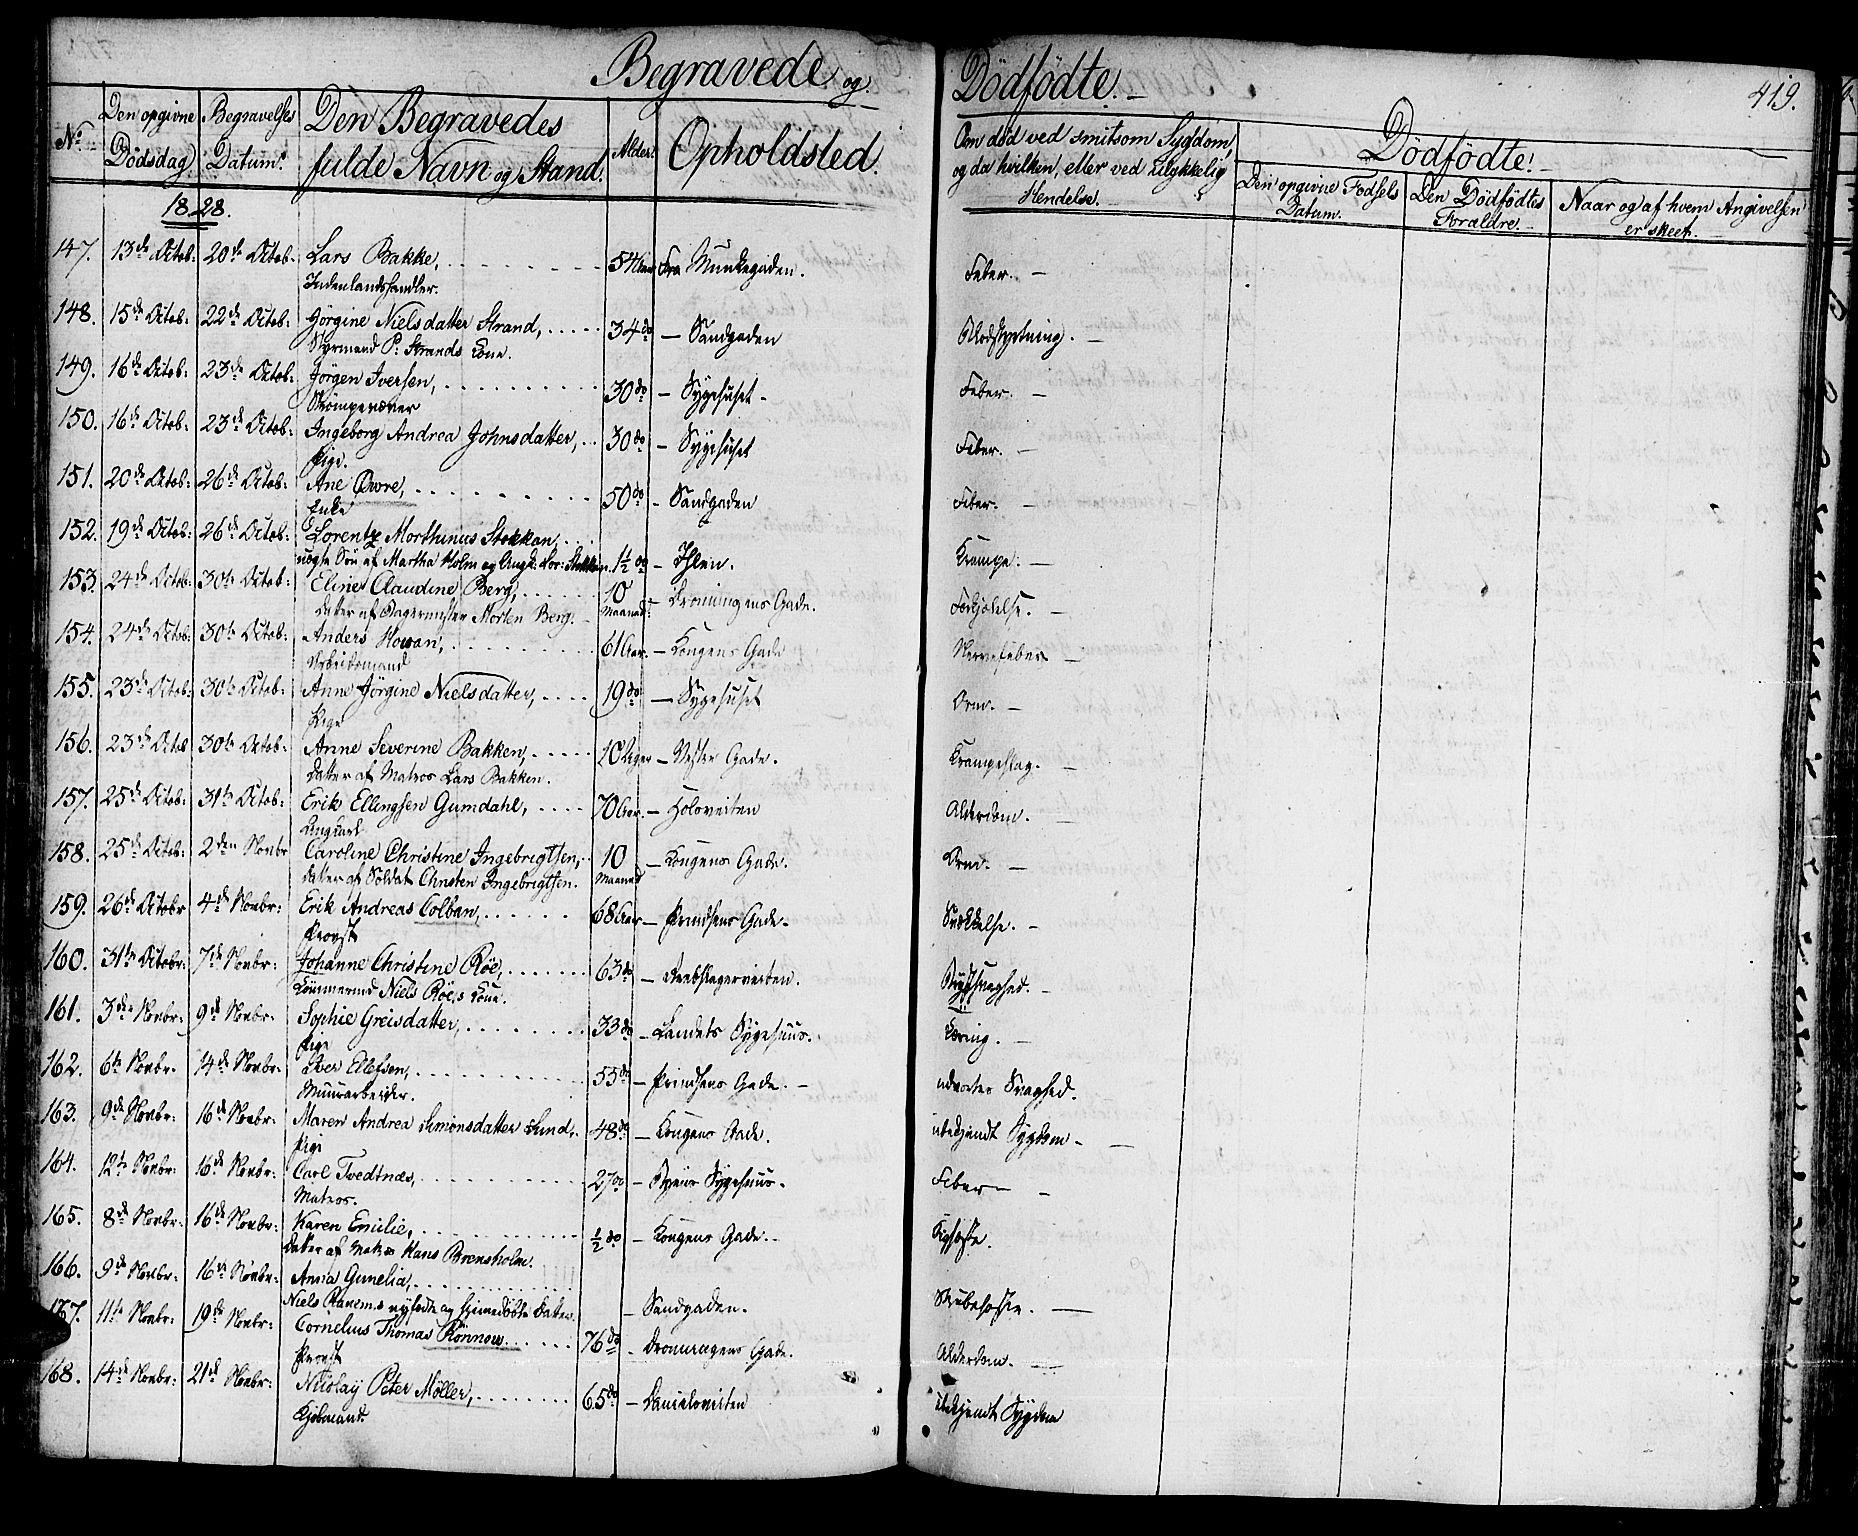 Begravede og Dödfödte.
419.
No. Den opgivne Dödsdag. Begravelses Datum. Den Begravedes fulde Navn og Stand. Alder. Opholdsted. Om död ved smitsom Sygdom, og da hvilken, eller ved Ulykkelig Hendelse. Dödfödte. Den opgivne Födsels Datum. Den Dödfödtes Foraldre. Naar og af hvem Angivelsen er skeet.
1828.
147. 13de Octob: 20de Octob: Lars Bakke, 54 Aar Fra Munkegaden. Feber.
Indenlandshandler.
148. 15de Octob: 22de Octob: Jörgine Nielsdatter Strand, 34 do — Sandgaden Blodstyrtning.
Styrmand P. Strands Kone.
149. 16de Octob: 23de Octob: Jörgen Iversen, 30 do — Sygehuset Feber.
Strömpevæver
150. 16de Octob: 23de Octob: Ingeborg Andrea Johnsdatter, 30 do — Sygehuset Feber.
Pige.
151. 20de Octob: 26de Octob: Ane Qvore, 50 do — Sandgaden Feber.
Enke
152. 19de Octob: 26de Octob: Lorentz Morthinus Stokkan, 1½ do — Ihlen. Krampe.
uægte Sön af Martha Holm og Ungk: Lor: Stokkan.
153. 24de Octob: 30te Octob: Eline Claudine Berg, 10 Maaned: — Dronningens Gade. Forkjölelse.
Datter af Bagermester Morten Berg.
154. 24de Octob: 30te Octob: Anders Hovan, 61 Aar. — Kongens Gade Nervefeber
Arbeidsmand
155. 23de Octob: 30te Octob: Anne Jörgine Nielsdatter, 19 do — Sygehuset Orm.
Pige
156. 23de Octob 30te Octob: Anne Severine Bakken, 10 Uger — Vester Gade. Krampeslag.
Datter af Matros Lars Bakken.
157. 25de Octob: 31te Octob: Erik Ellingsen Gumdahl, 70 Aar. — Holoveiten Alderdom.
Ungkarl
158. 25de Octob: 2den Novbr Caroline Christine Ingebrigtsen, 10 Maaned — Kongens Gade. Orm.
Datter af Soldat Christen Ingebrigtsen.
159. 26de Octobr 4de Novbr: Erik Andreas Colban, 68 Aar — Prindsens Gade. Svækkelse.
Provst
160. 31te Octobr: 7de Novbr: Johanne Christine Röe, 63 do — Repslagerveiten. Brystsvaghed.
Tömmermd Niels Röe,s Kone.
161. 3die Novbr: 9de Novbr. Sophie Greisdatter, 33 do — Landets Sygehuus. Tæring.
Pige
162. 6te Novbr. 14de Novbr: Iver Ellefsen, 55 do — Prindsens Gade. udvortes Svaghed.
Muurarbeider.
163. 9de Novbr: 16de Novbr: Maren Andrea Simonsdatter Sund, 48 do — Kongens Gade. ubekjendt Sygdom
Pige
164. 12te Novbr: 16de Novbr: Carl Tvedtnæs, 27 do — Byens Sygehuus. Feber
Matros.
165. 8de Novbr: 16de Novbr: Karen Emilie, ½ do — Kongens Gade. Kighoste.
Datter af Matros Hans Brensholm.
166. 9de Novbr: 16de Novbr: Anna Gunelia, — Sandgaden. Strubehoste.
Niels Ranem,s nyfödte og hjemmedöbte Datter.
167. 11te Novbr: 19de Novbr: Cornelius Thomas Rönnow. 76 do — Dronningens Gade. Alderdom.
Provst
168. 14de Novbr: 21de Novbr: Nicolay Peter Möller, 65 do — Danieloveiten ubekjendt Sygdom
Kjöbmand.